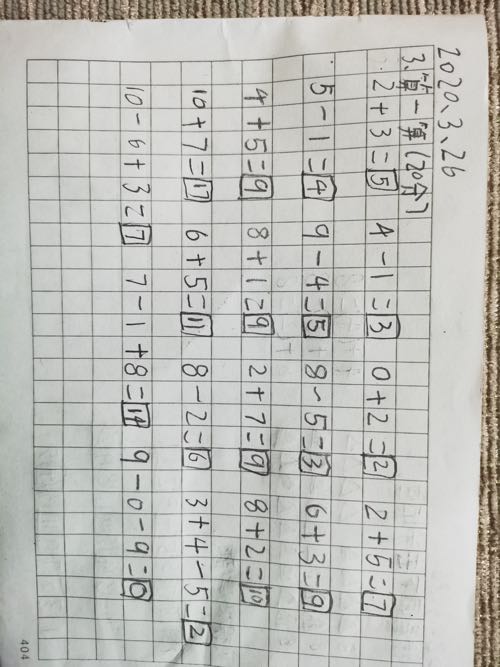 2020、3、26
3、算一算(20分)
2+3=5 4-1=3 0+2=2 2+5=7
5-1=4 9-4=5 8-5=3 6+3=9
4+5=9 8+1=9 2+7=9 8+2=10
10+7=17 6+5=11 8-2=6 3+4-5=2
10-6+3=7 7-1+8=14 9-0-9=0
404